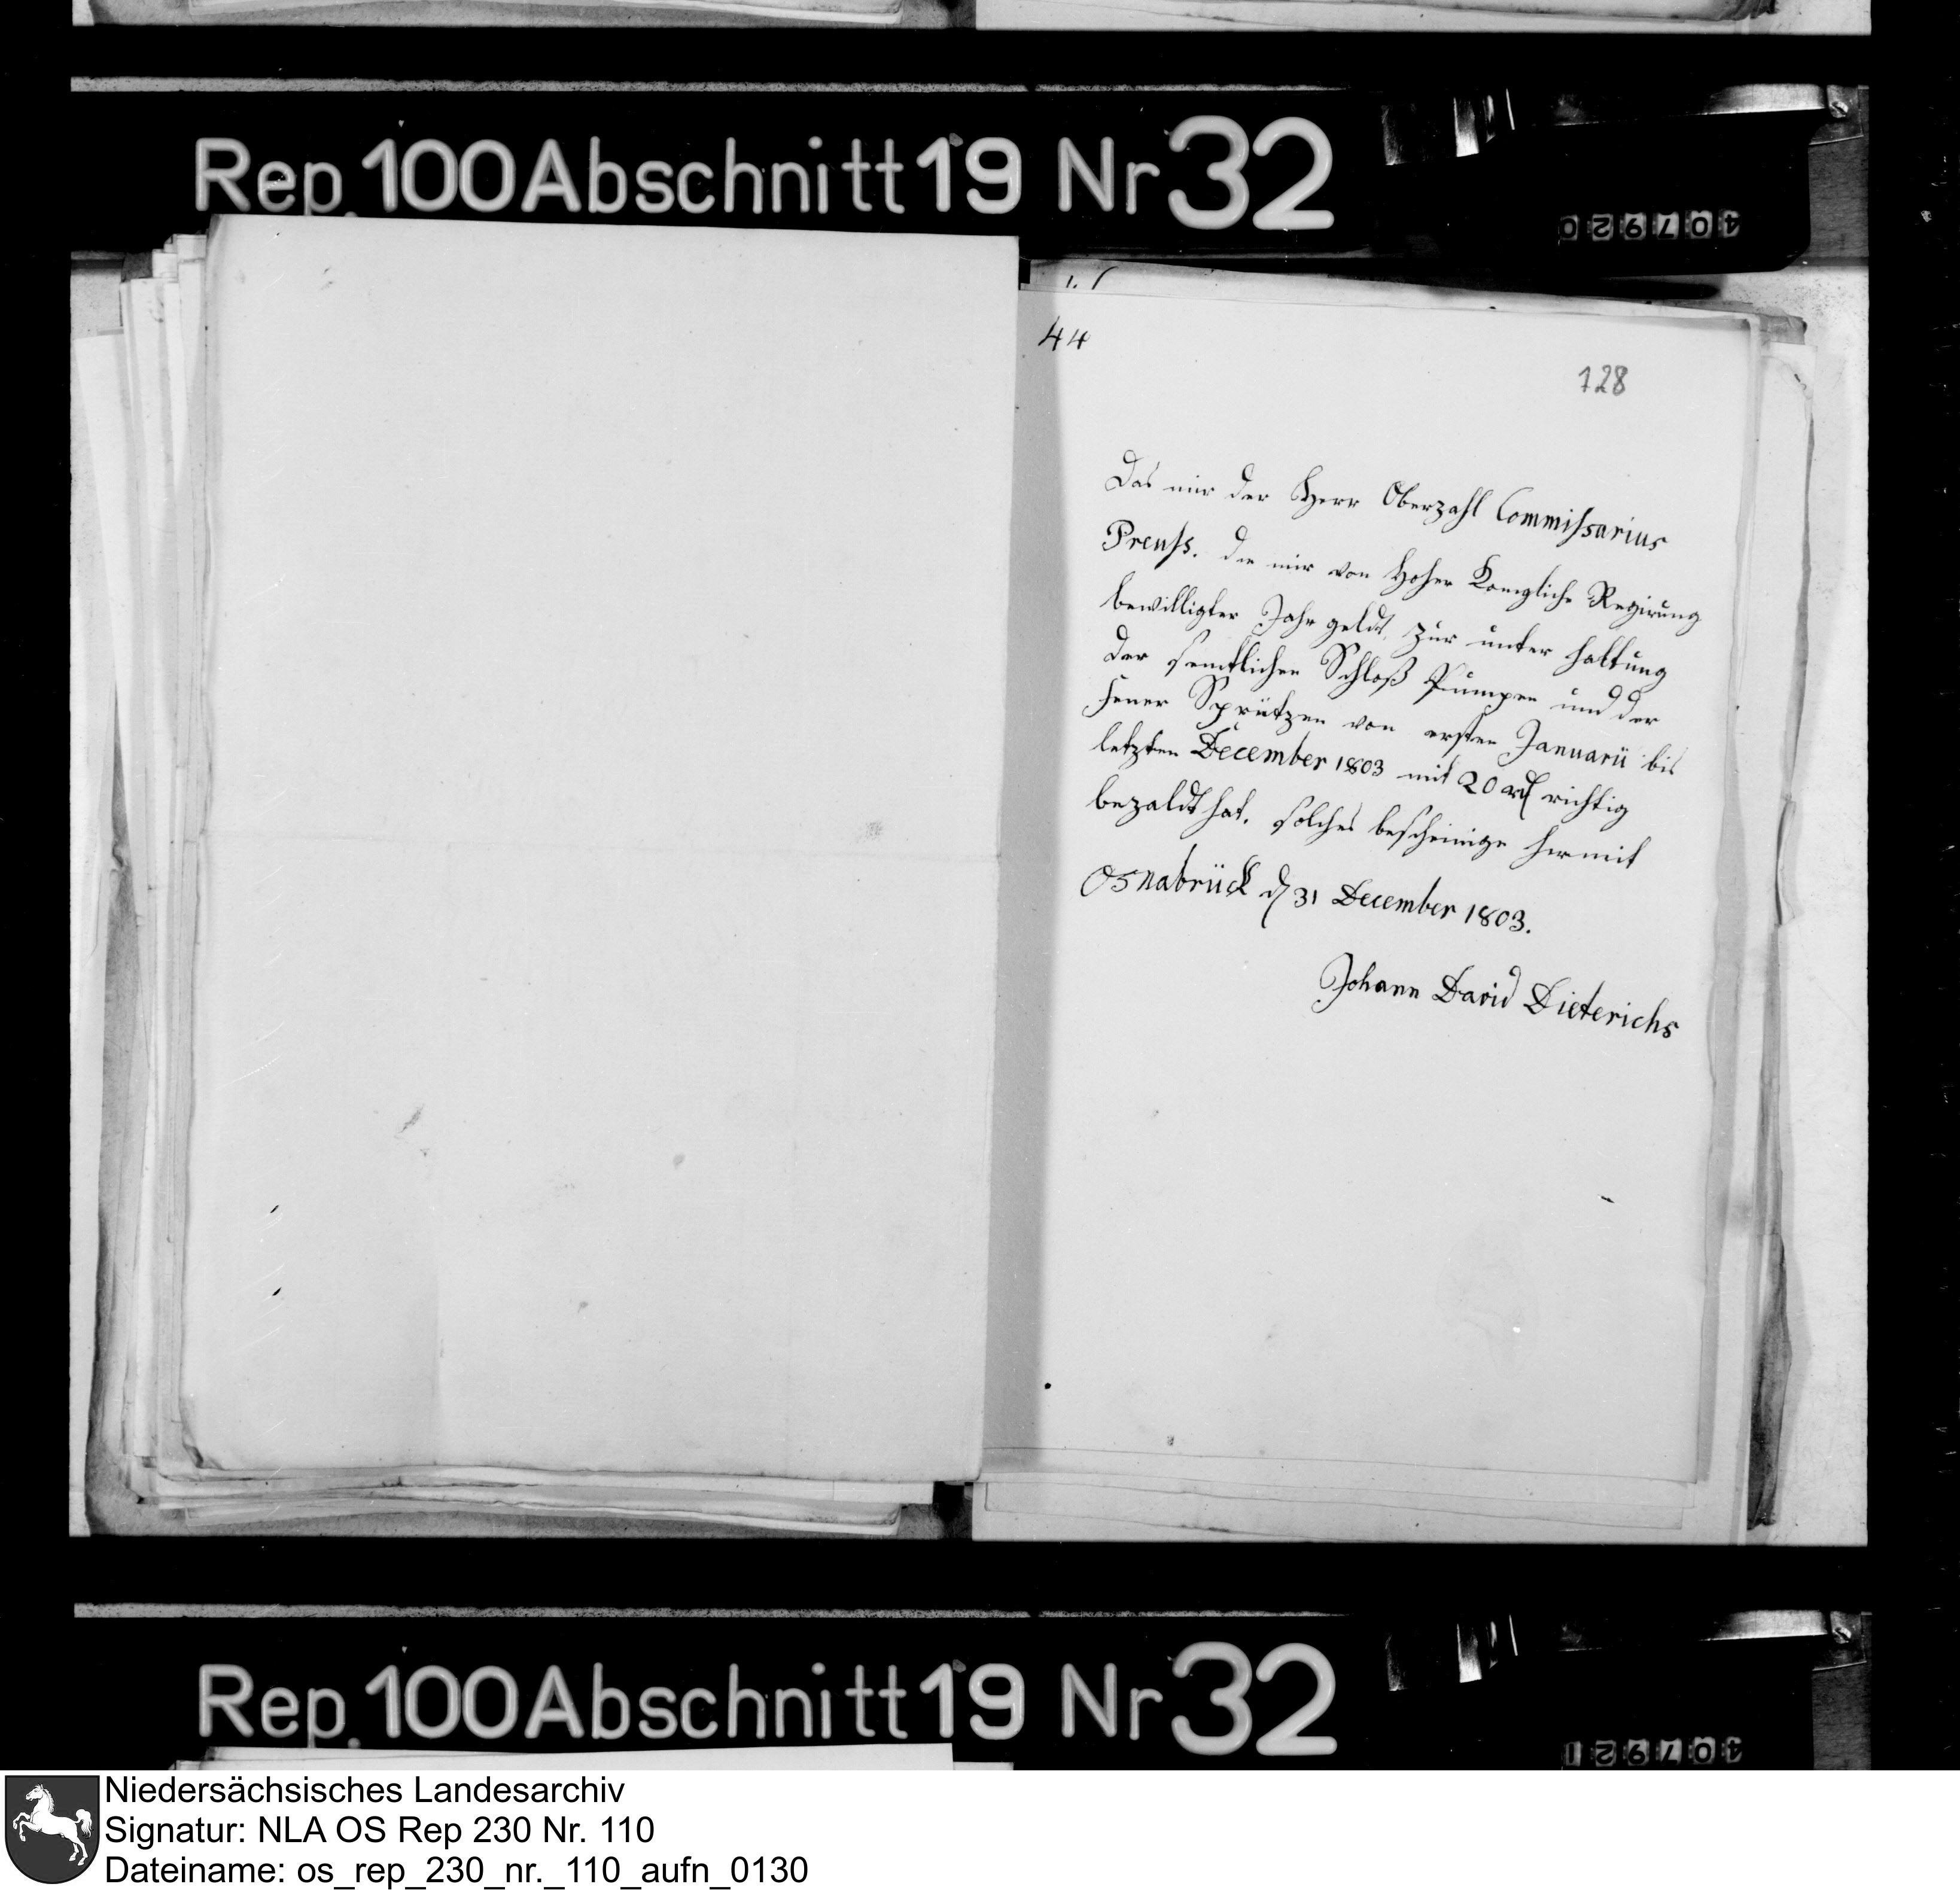 Rep. 100 Abschnitt 19 Nr 32
029704
44
128
Das mir der Herr Oberzahl Commissarius
Preuss. die mir von Hoher Königliche Regirung
bewilligter Jahr geldt, zur unter haltung
der semtlichen Schloß Pumpen und der
feuer Sprützen von ersten Januarii bis
letzten December 1803 mit 20 rt richtig
bezaldt hat. solches bescheinige hermit
Osnabrück d 31 December 1803.
Johann David Dieterichs
Rep. 100 Abschnitt 19 Nr 32
129704
Niedersächsisches Landesarchiv
Signatur: NLA OS Rep 230 Nr. 110
Dateiname: os_rep_230_nr._110_aufn_0130